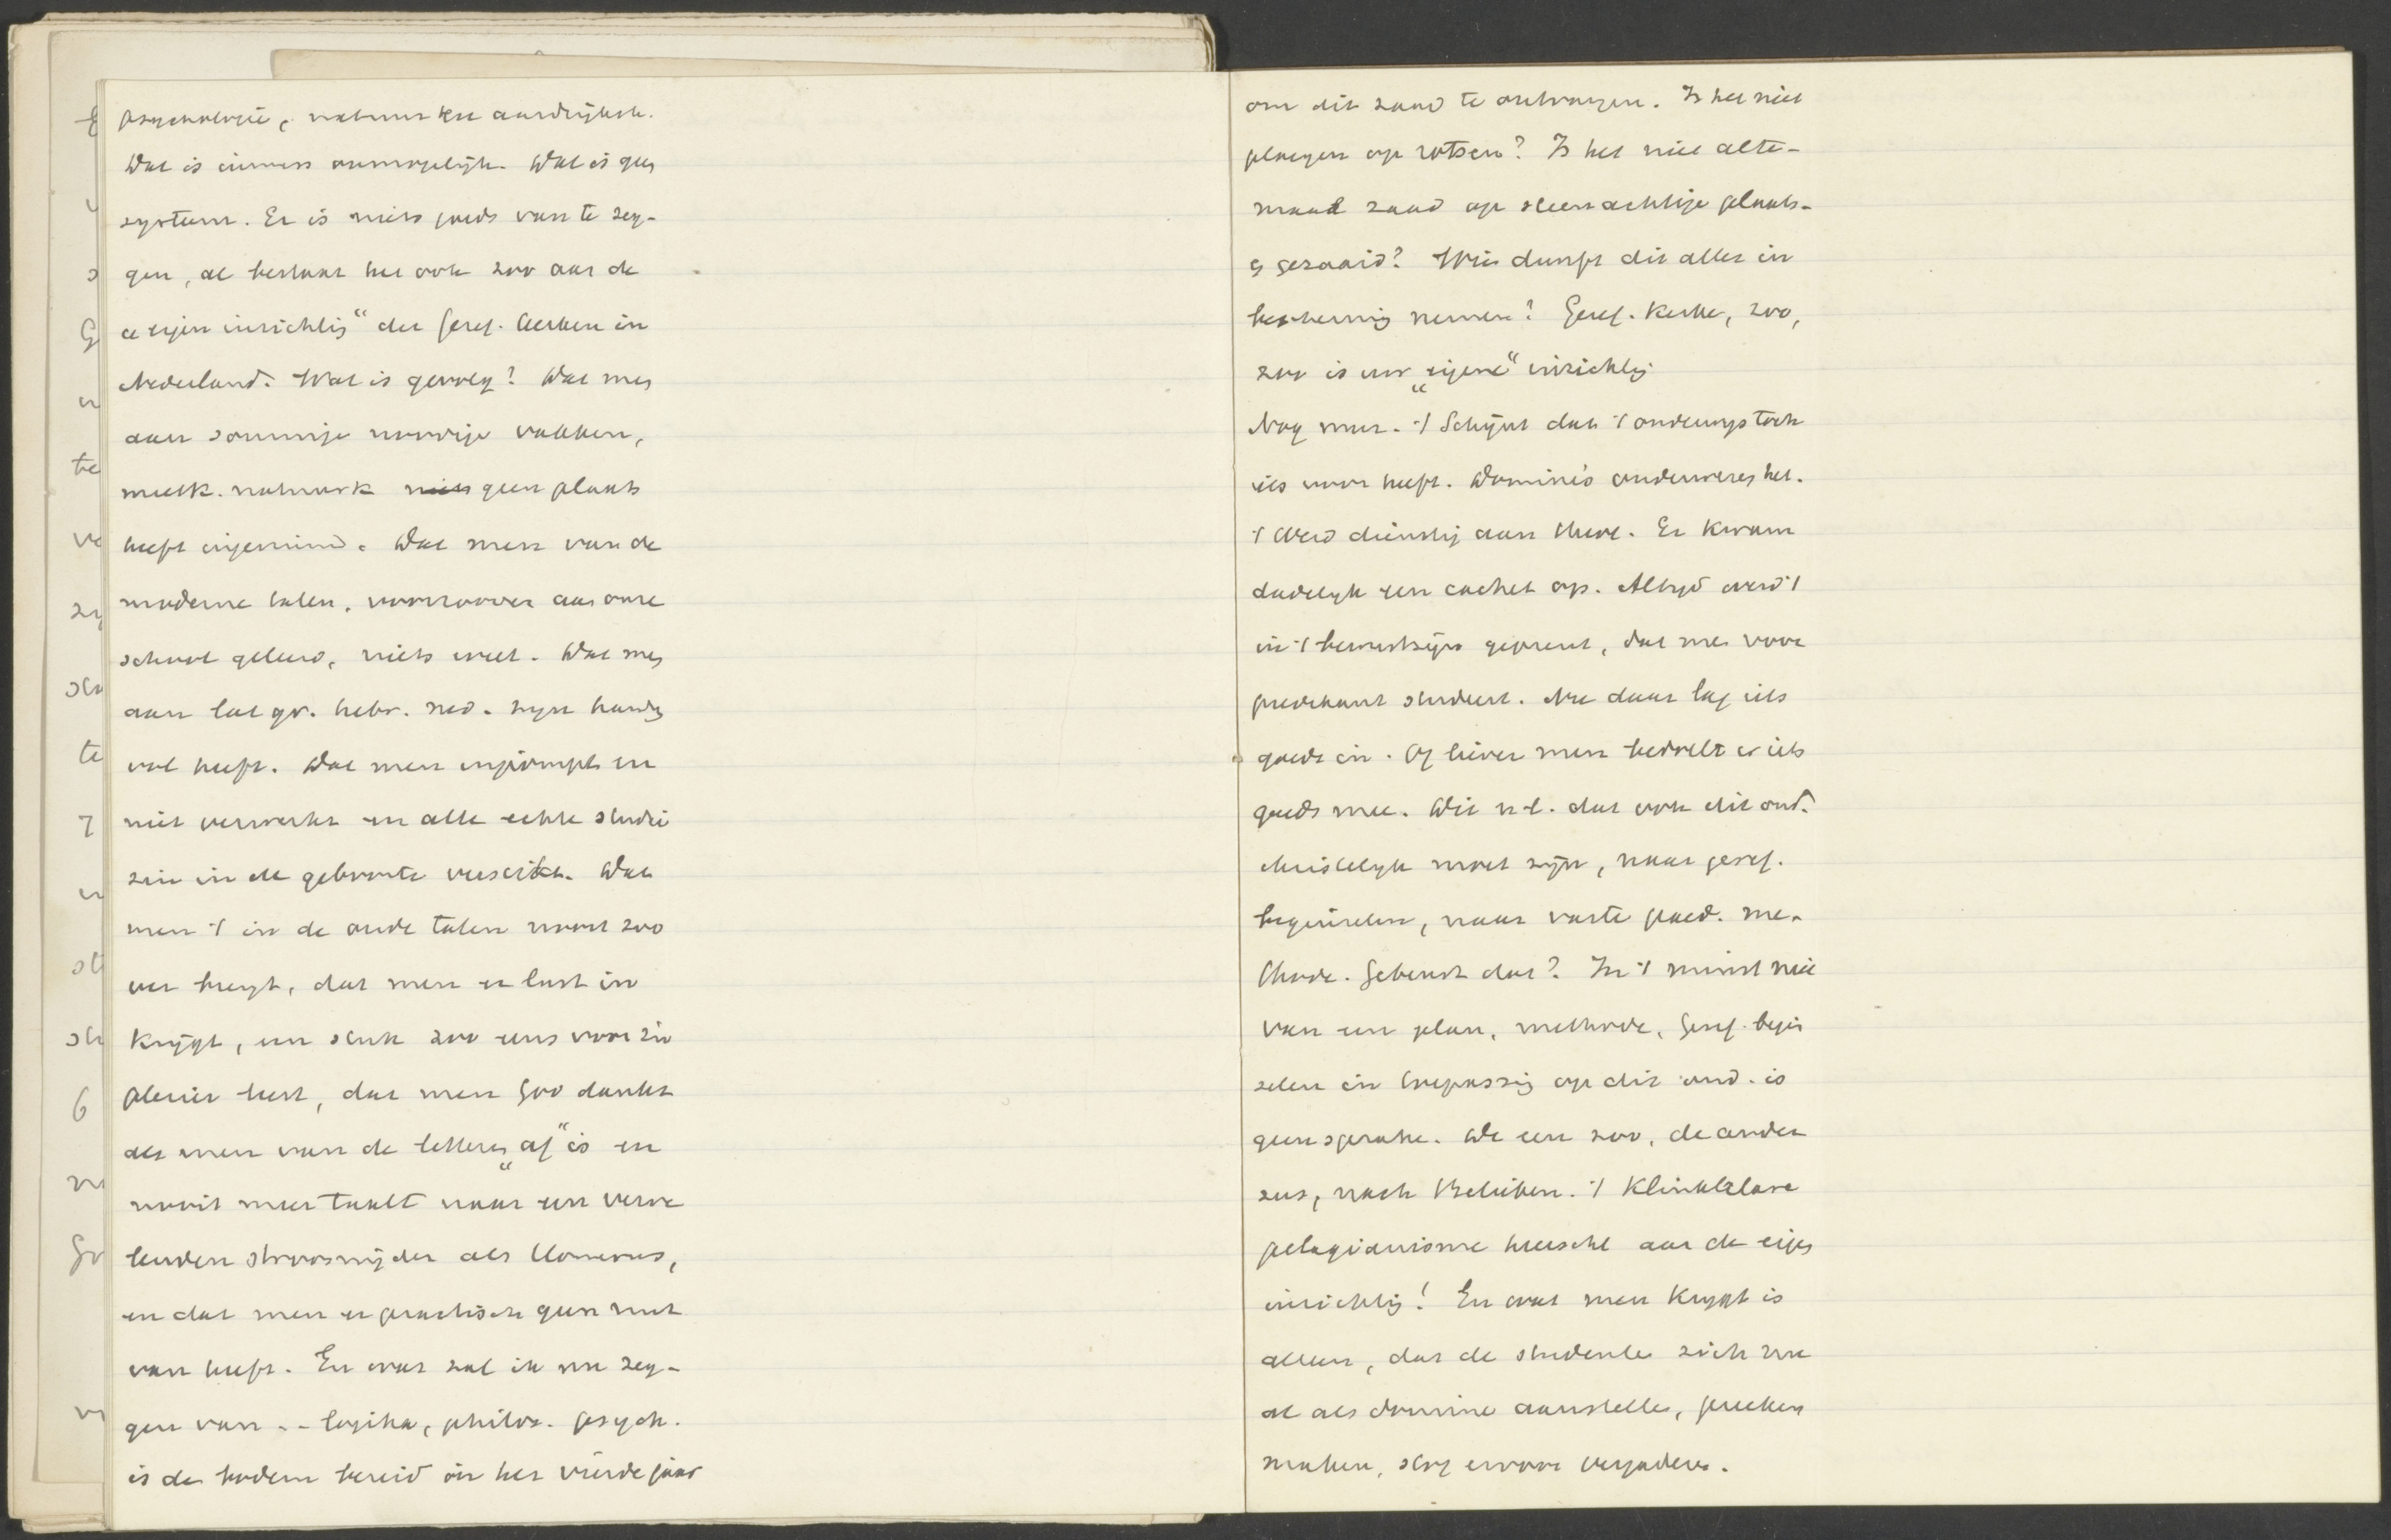 psychologie, natuurk en aardrijksk.
Dat is immers onmogelijk. Dat is geen
systeem. Er is niets goeds van te zeg-
gen, al bestaat het ook zoo aan de
„eigen inrichting“ der Geref. Kerken in
Nederland. Wat is gevolg? Dat men
aan sommige noodige vakken,
wisk. natuurk geen plaats
heeft ingeruimd. Dat men van de
moderne talen, voorzoover aan onze
school geleerd, niets weet. Dat men
aan lat gr. hebr. ned. zijn handen
vol heeft. Dat men inpompt en
niet verwerkt en alle echte studie
zin in de geboorte verstikt. Dat
men 't in de oude talen nooit zoo
ver brengt, dat men er lust in
krijgt, een stuk zoo eens voor zn
plezier leest, dat men God dankt
als men van de letteren „af“ is en
nooit meer taalt naar een verve
lenden stroosnijder als Homerus,
en dat men er practisch geen nut
van heeft. En wat zal ik nu zeg-
gen van -- logika, philos. psych.
is de bodem bereid in het vierde jaar
om dit zaad te ontvangen. Is het niet
ploegen op rotsen? Is het niet alte-
maal zaad op steenachtige plaats-
en gezaaid? Wie durft dit alles in
bescherming nemen? Geref. Kerke, zoo,
zoo is uw „eigene“ inrichting
Nog meer. 't Schijnt dat 't onderwijs toch
iets voor heeft. Dominé's onderwezen het.
't Werd dienstig aan theol. Er kwam
dadelijk een cachet op. Altijd werd 't
in 't bewustzijn geprent, dat men voor
predikant studeert. Nu daar lag iets
goeds in. Of liever men bedoelt er iets
goeds mee. Dit n.l. dat ook dit ond.
christelijk moet zijn, naar geref.
beginselen, naar vaste paed. me-
thode. Gebeurt dat? In 't minst niet
Van een plan, methode, Geref. begin
selen in toepassing op dit ond. is
geen sprake. De een zoo, de ander
zus, nach Belieben. 't Klinkklare
pelagianisme heerscht aan de eigen
inrichting! En wat men krijgt is
alleen, dat de studenten zich nu
al als domine aanstellen, preeken
maken, stof ervoor vergaderen.